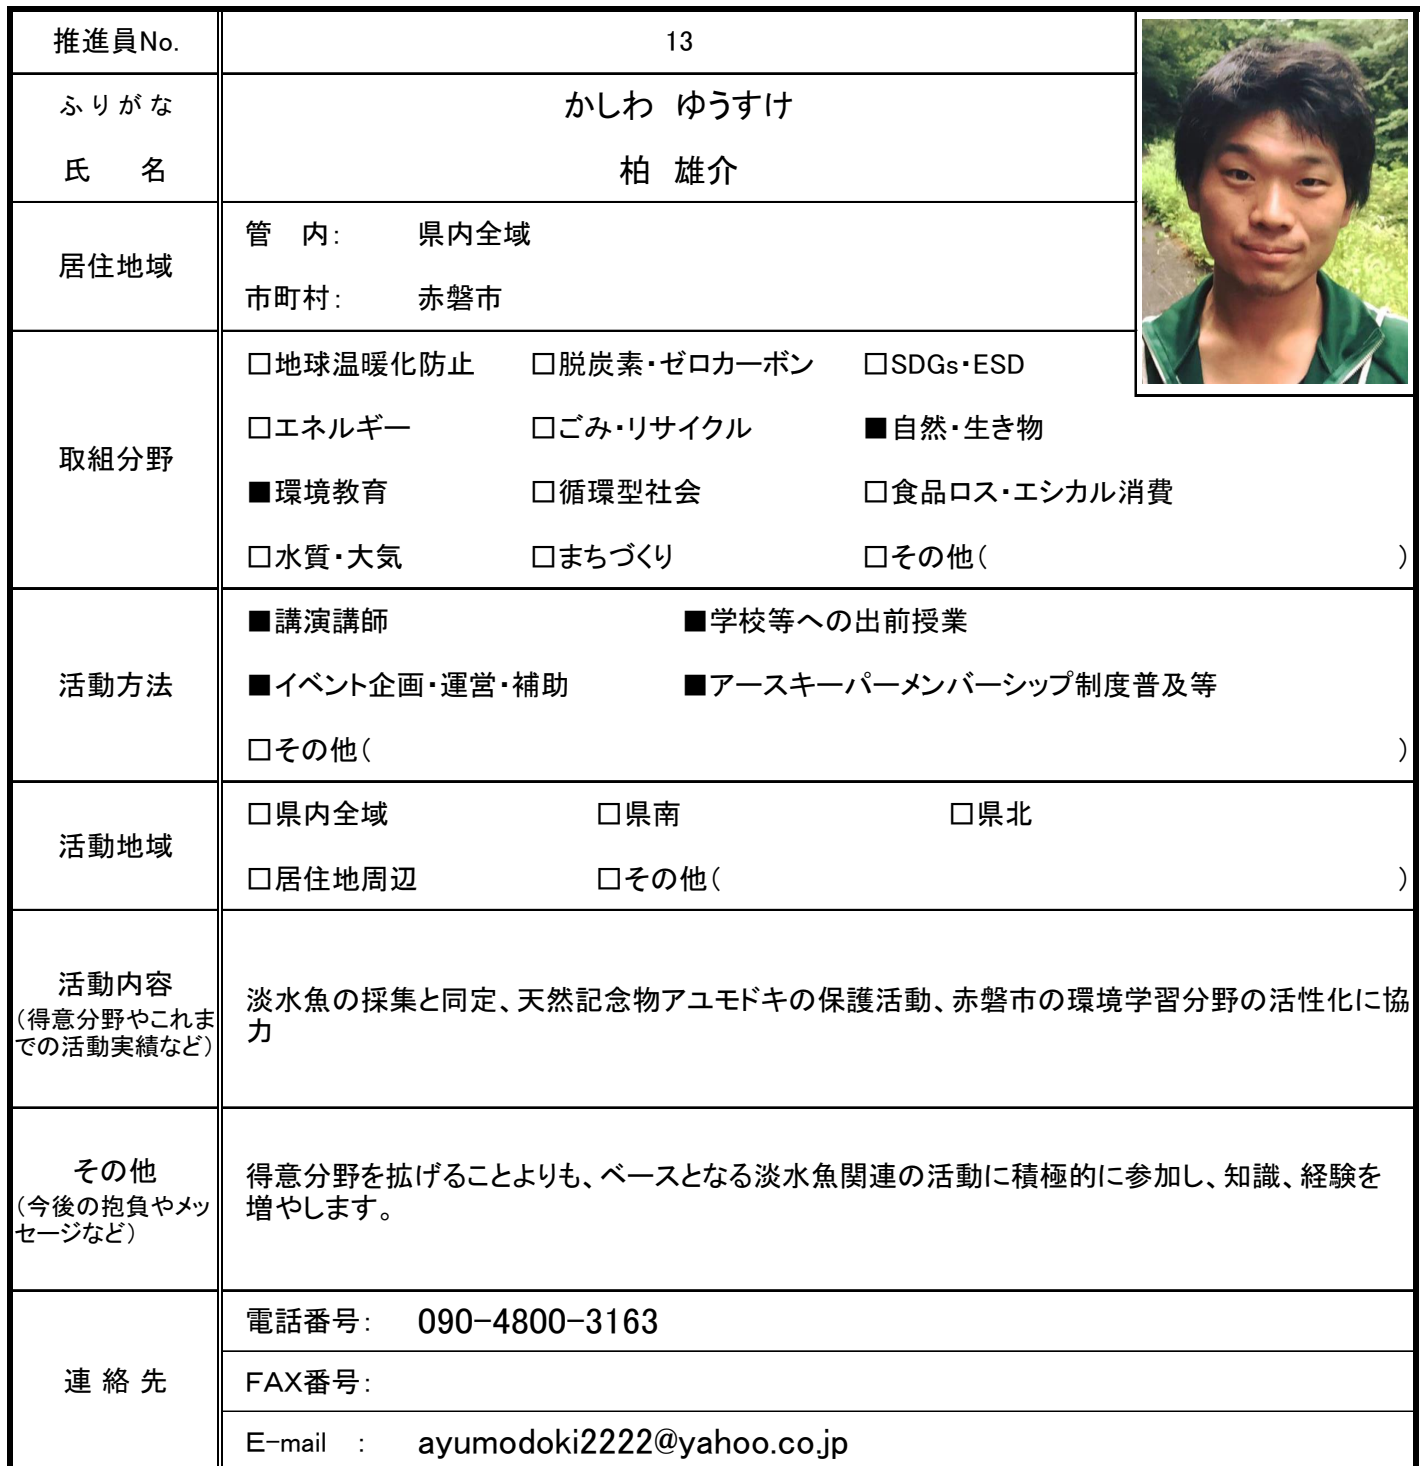 推進員No. 13
ふりがな かしわ　ゆうすけ
氏　名 柏　雄介
居住地域
管　内： 県内全域
市町村： 赤磐市
取組分野
□地球温暖化防止 □脱炭素・ゼロカーボン □SDGs・ESD
□エネルギー □ごみ・リサイクル ■自然・生き物
■環境教育 □循環型社会 □食品ロス・エシカル消費
□水質・大気 □まちづくり □その他（　）
活動方法
■講演講師 ■学校等への出前授業
■イベント企画・運営・補助 ■アースキーパーメンバーシップ制度普及等
□その他（　）
活動地域
□県内全域 □県南 □県北
□居住地周辺 □その他（　）
活動内容
（得意分野やこれま
での活動実績など）
淡水魚の採集と同定、天然記念物アユモドキの保護活動、赤磐市の環境学習分野の活性化に協
力
その他
（今後の抱負やメッ
セージなど）
得意分野を拡げることよりも、ベースとなる淡水魚関連の活動に積極的に参加し、知識、経験を
増やします。
連絡先
電話番号： 090-4800-3163
FAX番号：
E-mail ： ayumodoki2222@yahoo.co.jp